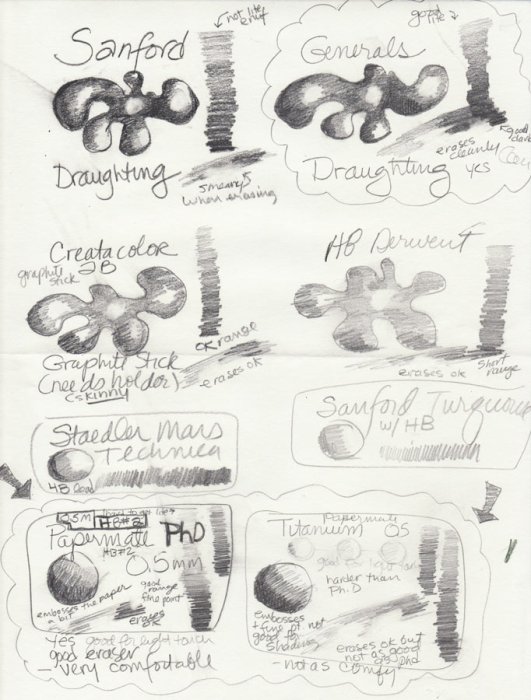 not lite
enuf
Sanford
Draughting
smeary
when erasing
good
lite
Generals
good
dark
erases
cleanly
Draughting yes
Creatacolor
2B
graphite
stick
Graphite Stick
(needs holder)
skinny
OK range
erases ok
HB Derwent
erases ok
short
range
Staedler Mars
Technica
HB lead
Sanford Turquoise
w/ HB
.5M
hard to get lite
HB#2
Papermate PhD
HB#2
0.5mm
embosses the paper
a bit
good
range
fine point
erases
ok
Yes good for light touch
good eraser
- very comfortable
Papermate
Titanium 05
good for light
harder than
Ph.D
embosses
+ fine pt. not
good for
shading
erases ok but
not as good
as phd
- not as comfy